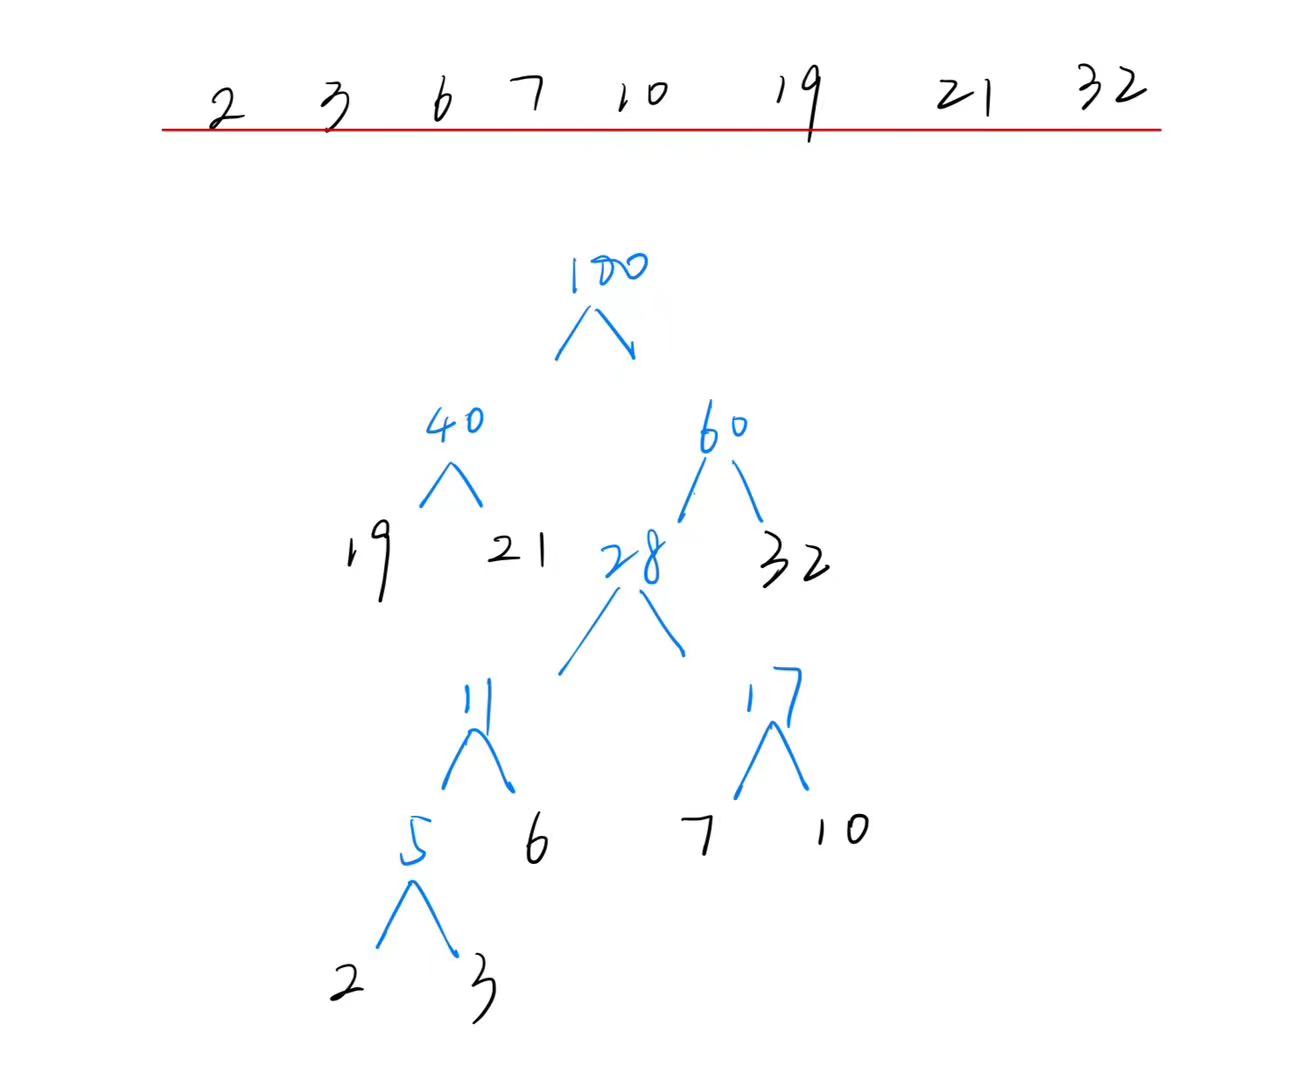 2 3 6 7 10 19 21 32
100
40 60
19 21 28 32
11 17
5 6 7 10
2 3